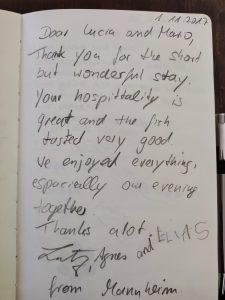 1.11.2017
Dear Lucia and Mario,
Thank you for the short
but wonderful stay.
Your hospittality is
great and the fish
tasted very good.
We enjoyed everything,
espacierlly our evening
together
Thanks alot.
Lutz, Agnes and ELIAS
from Mannheim